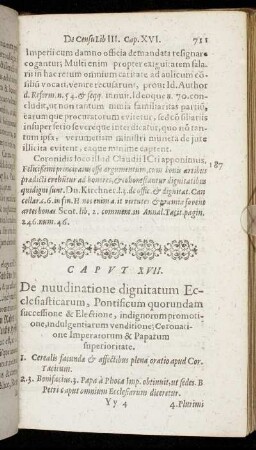 De Censu Lib III. Cap. XVI. 711
Imperii cum damno officia demandata resignare
cogantur; Multi enim propter exiguitatem sala-
rii in hac rerum omnium caritate ad aulicum con-
silium vocati, venire recusarunt, prout Id. Author
d. Reform. n. 54. & seqq. innuit. Ideoque n. 70. con-
cludit, ut non tantum nimia familiaritas partiū,
earumque procuratorum evitetur, sed & sinistris
insuper se
vero penuria, verumetiam ministri munera de jure
illicita evitent, eāque maxime caput.
Coronidis loco illud Claudii ICti apponimus. 187
Felicissimi principatus est argumentum, cum bonis artibus
præditi evehuntur ad honores, & cohonestantur dignitatibus
quidquid sunt. Dn. Kirchner. l. 4. de offic. & dignitat. Can
cellar. c. 6. in fin. H nec enim a. it virtutes & præmia fovent
artes bonas Scot. lib. 2. comment. in Annal. Tacit. pagin.
246. num. 46.
CAPVT XVII.
De nundinatione dignitatum Ec-
clesiasticarum, Pontificum quorundam
successione & Electione, indignorum promoti-
one, indulgentiarum venditione; Coronati-
one Imperatorum & Papatum
superioritate.
1. Cerealis facunda & affectibus plena oratio apud Cor.
Tacitum.
2. 3. Bonifacius. 3. Papa à Phoca Imp. obtinuit, ut sedes. B
Petri Caput omnium Ecclesiarum diceretur.
Yy 4 4. Plurimi